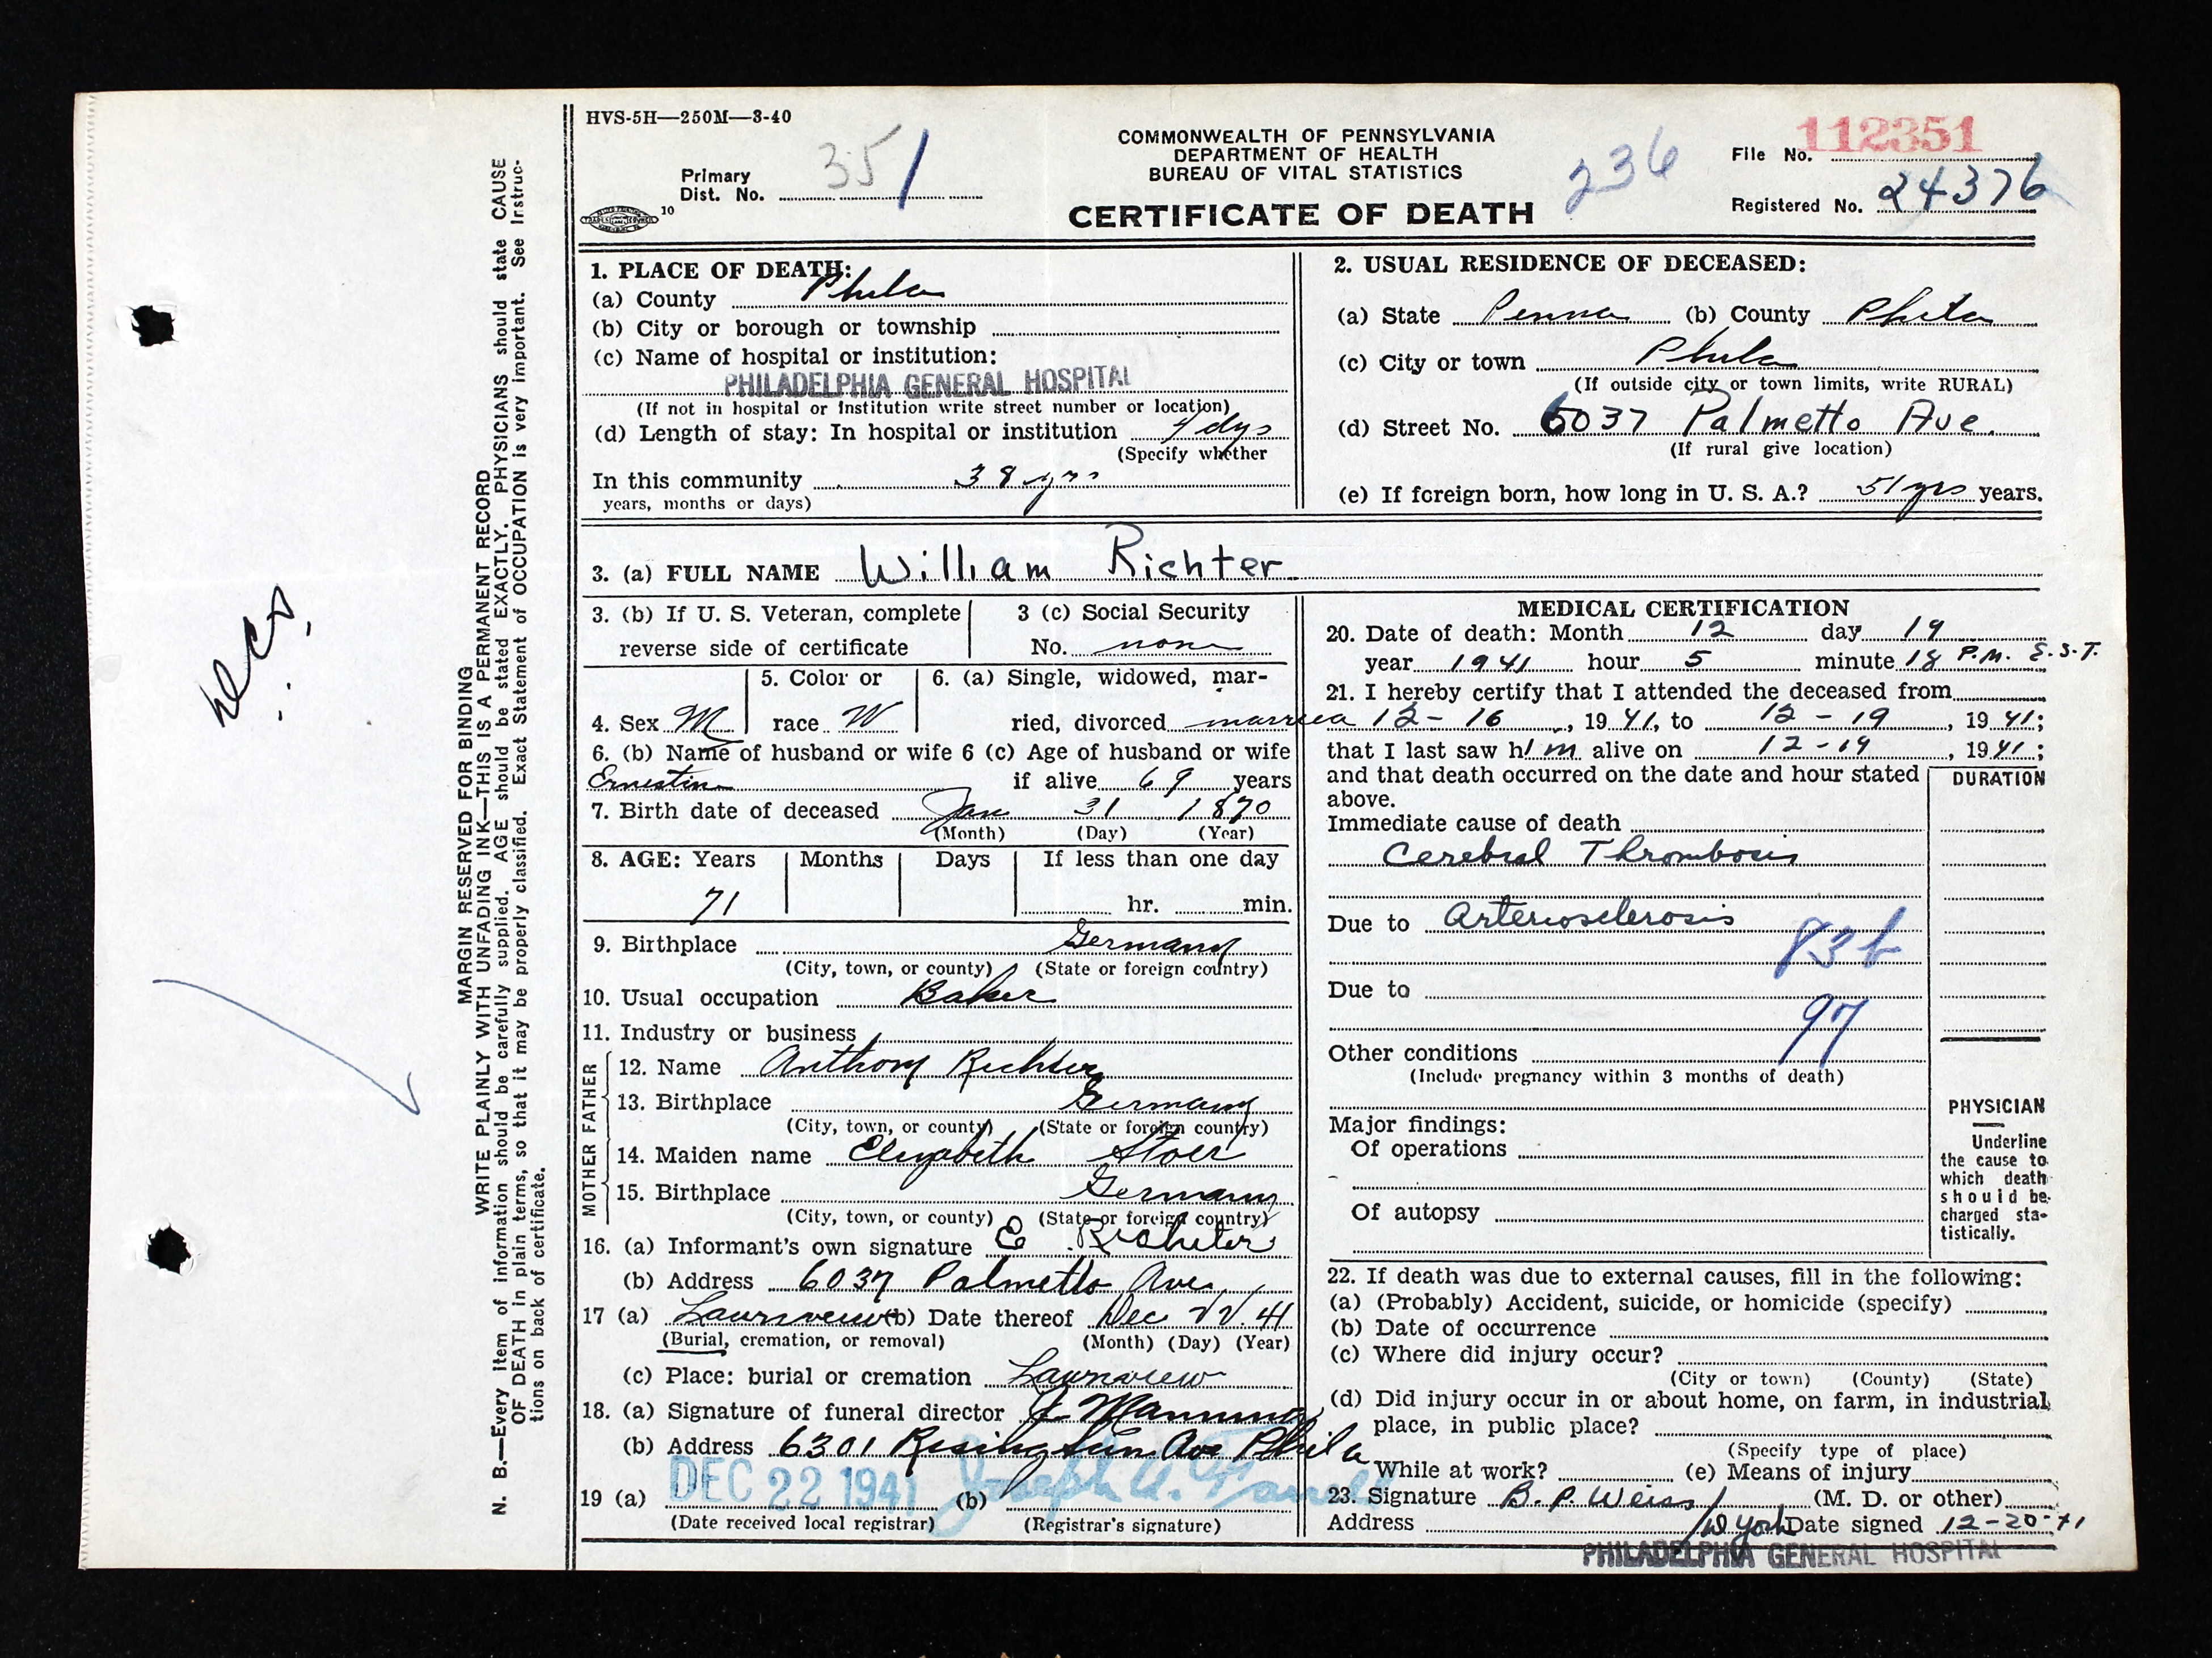 HVS-5H—250M—3-40
COMMONWEALTH OF PENNSYLVANIA
DEPARTMENT OF HEALTH
BUREAU OF VITAL STATISTICS
CERTIFICATE OF DEATH
Primary
Dist. No. 351
10
236
File No. 112351
Registered No. 24376
MARGIN RESERVED FOR BINDING
WRITE PLAINLY WITH UNFADING INK—THIS IS A PERMANENT RECORD
N. B.—Every item of information should be carefully supplied. AGE should be stated EXACTLY. PHYSICIANS should state CAUSE
OF DEATH in plain terms, so that it may be properly classified. Exact Statement of OCCUPATION is very important. See Instruc-
tions on back of certificate.
1. PLACE OF DEATH:
(a) County Phila
(b) City or borough or township
(c) Name of hospital or institution:
PHILADELPHIA GENERAL HOSPITAL
(If not in hospital or institution write street number or location)
(d) Length of stay: In hospital or institution 4 dys
(Specify whether
In this community 38 yrs
years, months or days)
2. USUAL RESIDENCE OF DECEASED:
(a) State Penna (b) County Phila
(c) City or town Phila
(If outside city or town limits, write RURAL)
(d) Street No. 6037 Palmetto Ave.
(If rural give location)
(e) If foreign born, how long in U. S. A.? 51 yrs years.
3. (a) FULL NAME William Richter
3. (b) If U. S. Veteran, complete
reverse side of certificate
3 (c) Social Security
No. none
4. Sex M
5. Color or
race W
6. (a) Single, widowed, mar-
ried, divorced married
6. (b) Name of husband or wife 6 (c) Age of husband or wife
Ernestine if alive 69 years
7. Birth date of deceased Jan 31 1870
(Month) (Day) (Year)
8. AGE: Years Months Days If less than one day
71 hr. min.
9. Birthplace Germany
(City, town, or county) (State or foreign country)
10. Usual occupation Baker
11. Industry or business
FATHER
12. Name Anthony Richter
13. Birthplace Germany
(City, town, or county) (State or foreign country)
MOTHER
14. Maiden name Elizabeth
15. Birthplace Germany
(City, town, or county) (State or foreign country)
16. (a) Informant's own signature E Richter
(b) Address 6037 Palmetto Ave
17 (a) Lawnview (b) Date thereof Dec 22. 41
(Burial, cremation, or removal) (Month) (Day) (Year)
(c) Place: burial or cremation Lawnview
18. (a) Signature of funeral director
(b) Address 6301 Rising Sun Ave Phila
19 (a) DEC 22 1941 (b) Joseph
(Date received local registrar) (Registrar's signature)
MEDICAL CERTIFICATION
20. Date of death: Month 12 day 19
year 1941 hour 5 minute 18 P.M. E.S.T.
21. I hereby certify that I attended the deceased from
12-16, 1941, to 12-19, 1941;
that I last saw him alive on 12-19, 1941;
and that death occurred on the date and hour stated
above.
DURATION
Immediate cause of death
Cerebral Thrombosis
Due to Arteriosclerosis
83b
Due to
97
Other conditions
(Include pregnancy within 3 months of death)
Major findings:
Of operations
Of autopsy
PHYSICIAN
Underline
the cause to
which death
should be
charged sta-
tistically.
22. If death was due to external causes, fill in the following:
(a) (Probably) Accident, suicide, or homicide (specify)
(b) Date of occurrence
(c) Where did injury occur?
(City or town) (County) (State)
(d) Did injury occur in or about home, on farm, in industrial
place, in public place?
(Specify type of place)
While at work? (e) Means of injury
23. Signature B. P. Weiss (M. D. or other)
Address Date signed 12-20-41
PHILADELPHIA GENERAL HOSPITAL